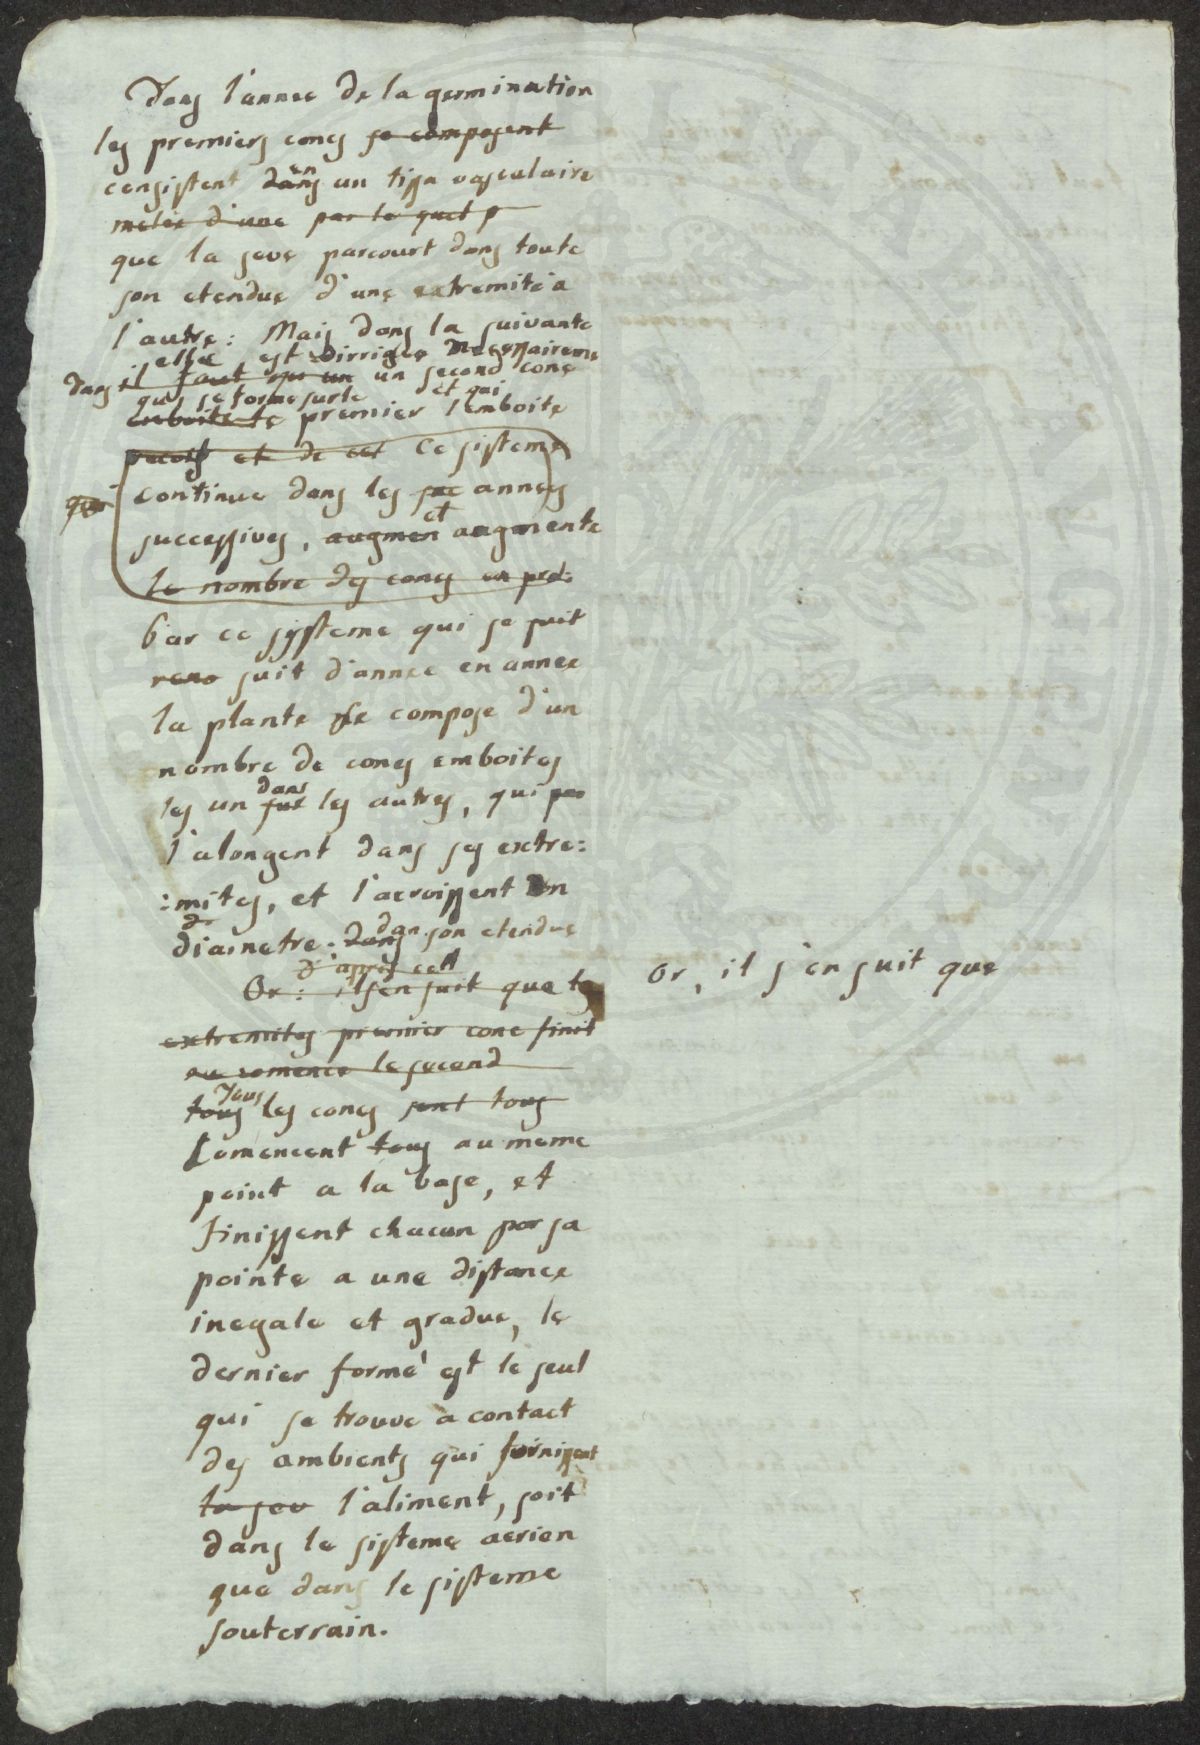 Dans l'annee de la germination
les premiers cones se composent
consistent dans en un tissu vasculaire
melée d'une par le quel p
que la seve parcourt dans toute
son etendue d'une extremité a
l'autre: Mais dans la suivante
elle est dirrigée necessaireme
dans il faut qu un un second cone
qui se forme sur le et qui
emboite le premier l'emboite
et de cet Ce sisteme
qui continue dans les suc annees
successives, augmen et augmente
le nombre des cones en pro:
Par ce systeme qui se suit
reno suit d'annee en annee
la plante se compose d'un
nombre de cones emboites
les un sur dans les autres, qui
l'alongent dans ses extre:
:mites, et l'acroissent en
diametre. dans dan son etendue
D'apres cela
Or: il s'en suit que le
Or, il s'en suit que
extremites premier cone finit
ou comence le second
tous Tous les cones sont tous
Comencent tous au meme
point a la base, et
finissent chacun par sa
pointe a une distance
inegale et gradue, le
dernier formé est le seul
qui se trouve à contact
des ambients qui fornissent
la sev l'aliment, soit
dans le sisteme aerien
que dans le sisteme
souterrain.